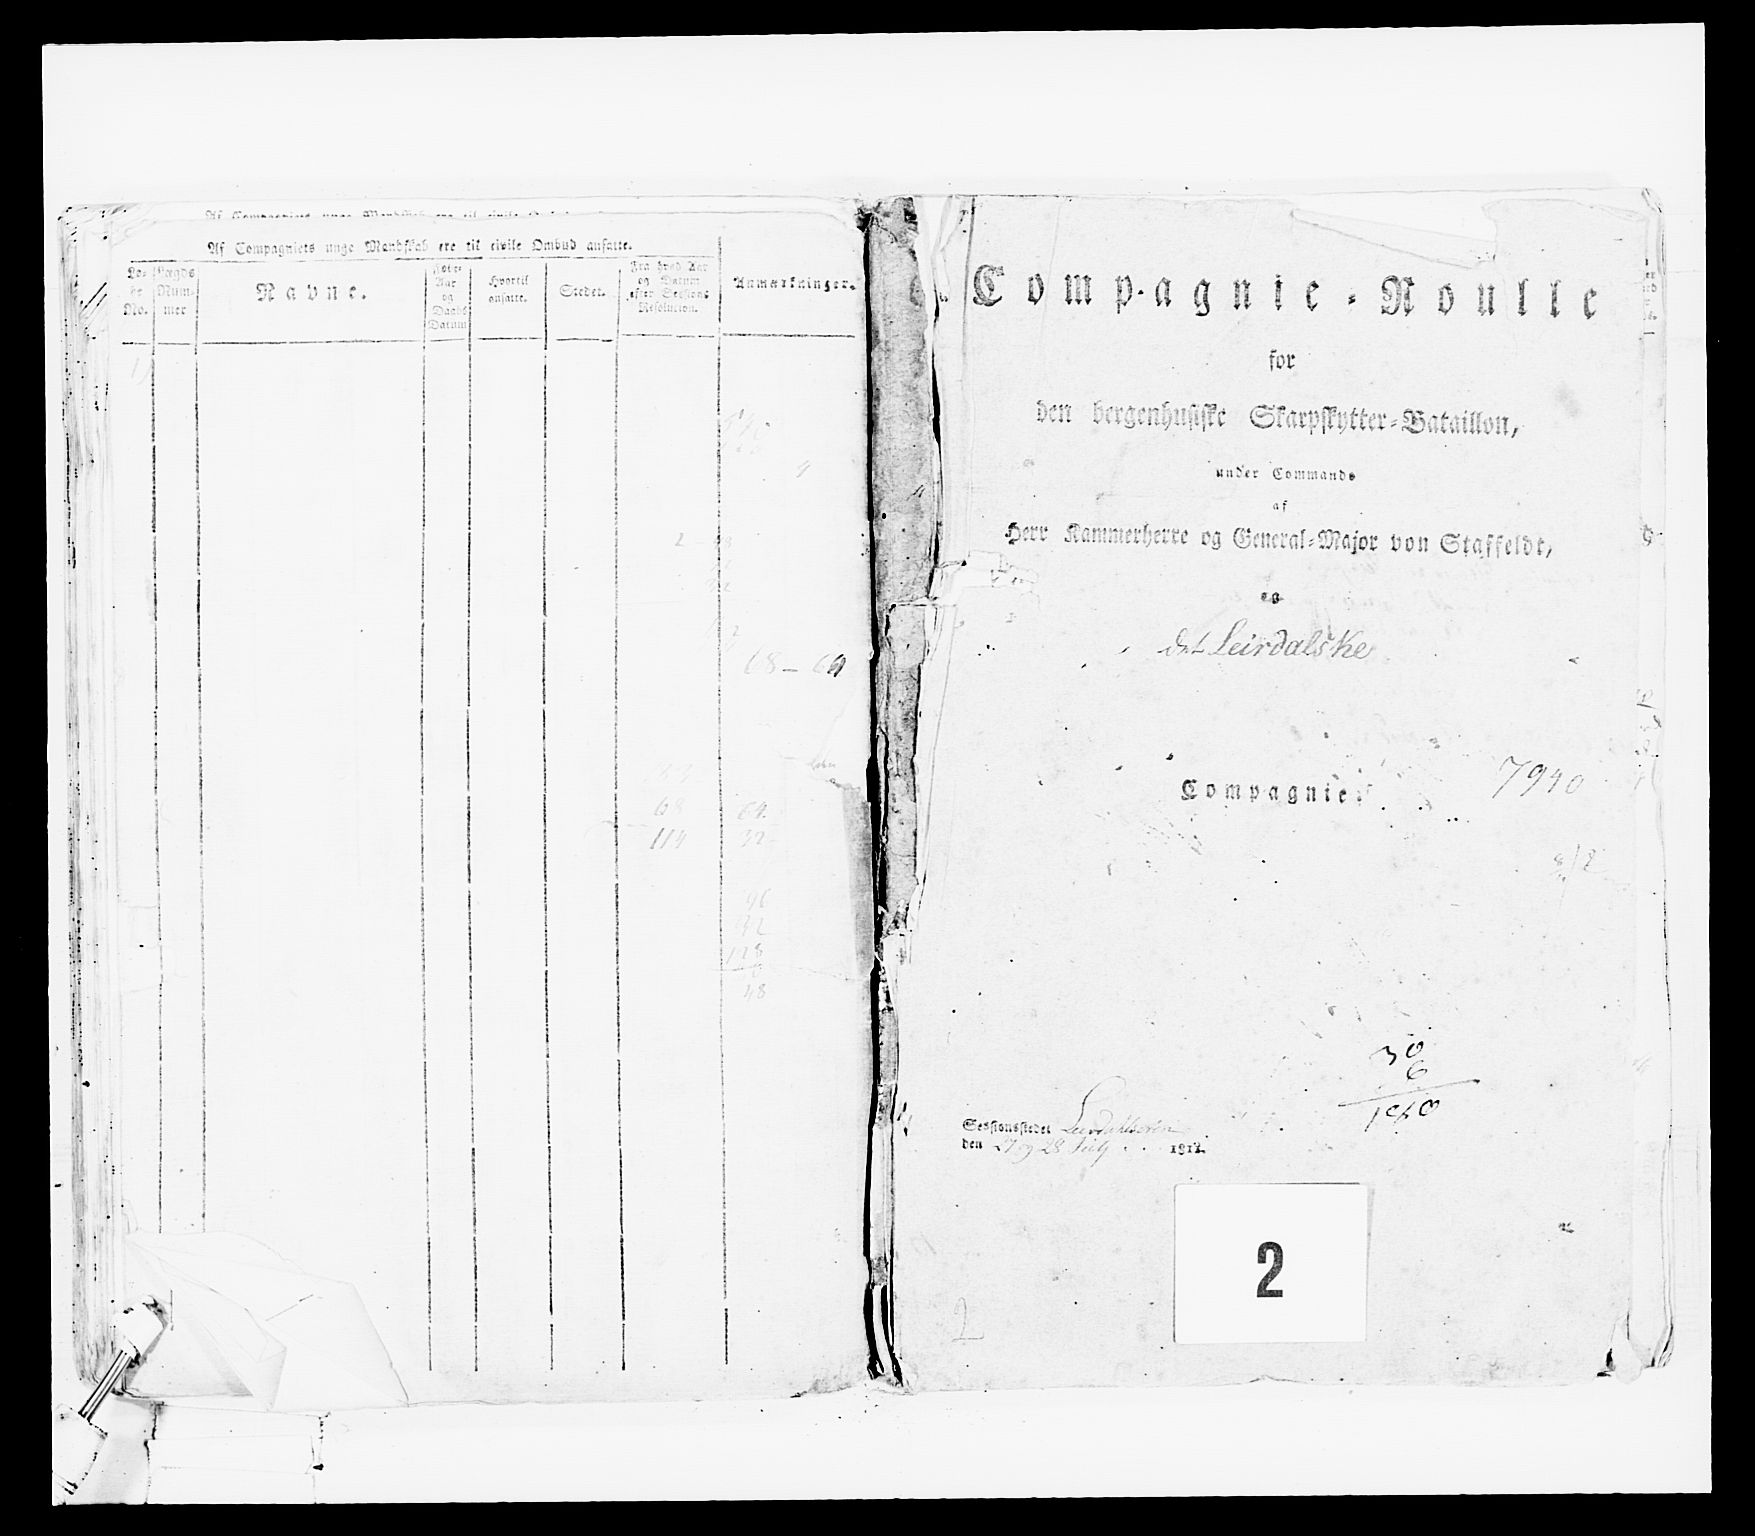 Af Compagniets unge Mandskab ere til civile Ombud ansatte.
Lø-
be
No.
Lægds
Num-
mer
Navne.
Føde-
Aar
og
Daabs
Datum
Hvortil
ansatte.
Stedet.
Fra hvad Aar
og Datum
efter Sessions
Resolution.
Anmærkninger.
2 - 48
68 - 60
68 64.
114 32
96
32
128
6
48
Compagnie-Roulle
for
den bergenhusiske Skarpskytter-Bataillon,
under Commando
af
Herr Kammerherre og General-Major von Staffeldt,
og
det Leirdalske
Compagnie.
7940
30
6
Sessionsstedet Leirdahlsøren
den 27 og 28 July 1812.
2
2